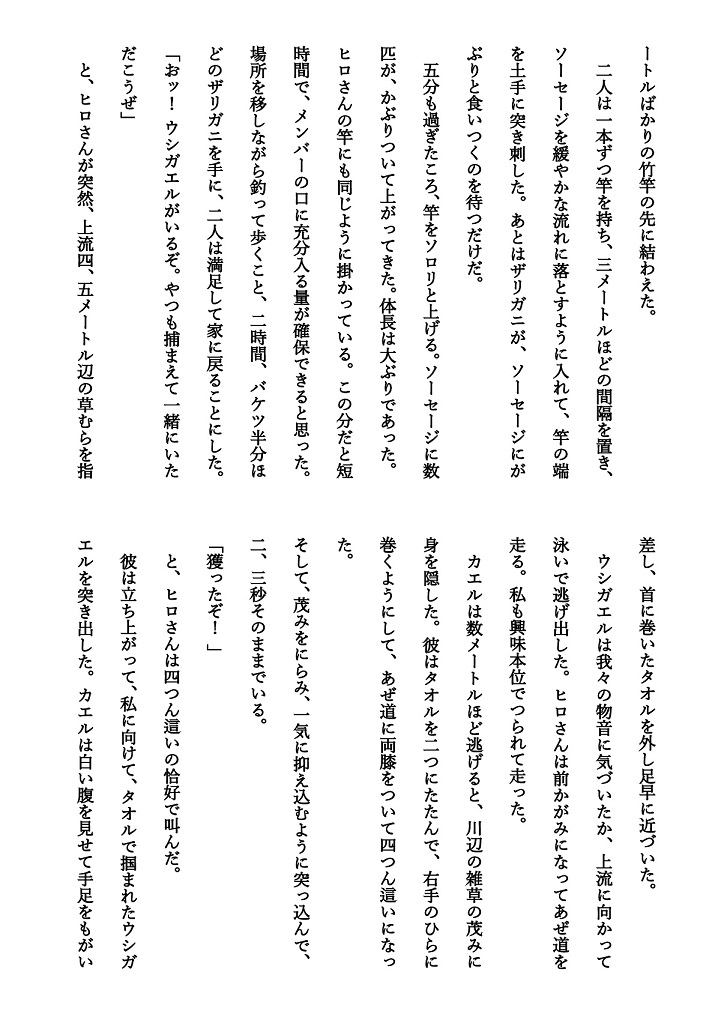 ートルばかりの竹竿の先に結わえた。
　二人は一本ずつ竿を持ち、三メートルほどの間隔を置き、
ソーセージを緩やかな流れに落とすように入れて、竿の端
を土手に突き刺した。あとはザリガニが、ソーセージにが
ぶりと食いつくのを待つだけだ。
　五分も過ぎたころ、竿をソロリと上げる。ソーセージに数
匹が、かぶりついて上がってきた。体長は大ぶりであった。
ヒロさんの竿にも同じように掛かっている。この分だと短
時間で、メンバーの口に充分入る量が確保できると思った。
場所を移しながら釣って歩くこと、二時間、バケツ半分ほ
どのザリガニを手に、二人は満足して家に戻ることにした。
「おッ！ ウシガエルがいるぞ。やつも捕まえて一緒にいた
だこうぜ」
　と、ヒロさんが突然、上流四、五メートル辺の草むらを指
差し、首に巻いたタオルを外し足早に近づいた。
　ウシガエルは我々の物音に気づいたか、上流に向かって
泳いで逃げ出した。ヒロさんは前かがみになってあぜ道を
走る。私も興味本位でつられて走った。
　カエルは数メートルほど逃げると、川辺の雑草の茂みに
身を隠した。彼はタオルを二つにたたんで、右手のひらに
巻くようにして、あぜ道に両膝をついて四つん這いになっ
た。
そして、茂みをにらみ、一気に抑え込むように突っ込んで、
二、三秒そのままでいる。
「獲ったぞ！」
　と、ヒロさんは四つん這いの恰好で叫んだ。
　彼は立ち上がって、私に向けて、タオルで掴まれたウシガ
エルを突き出した。カエルは白い腹を見せて手足をもがい